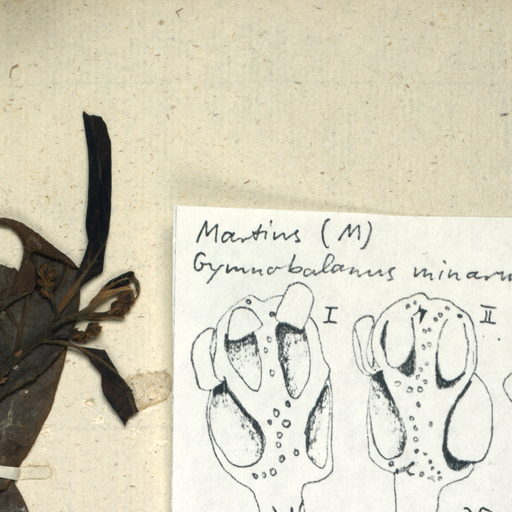 Martius (M)
Gymnobalanus minarum
I II